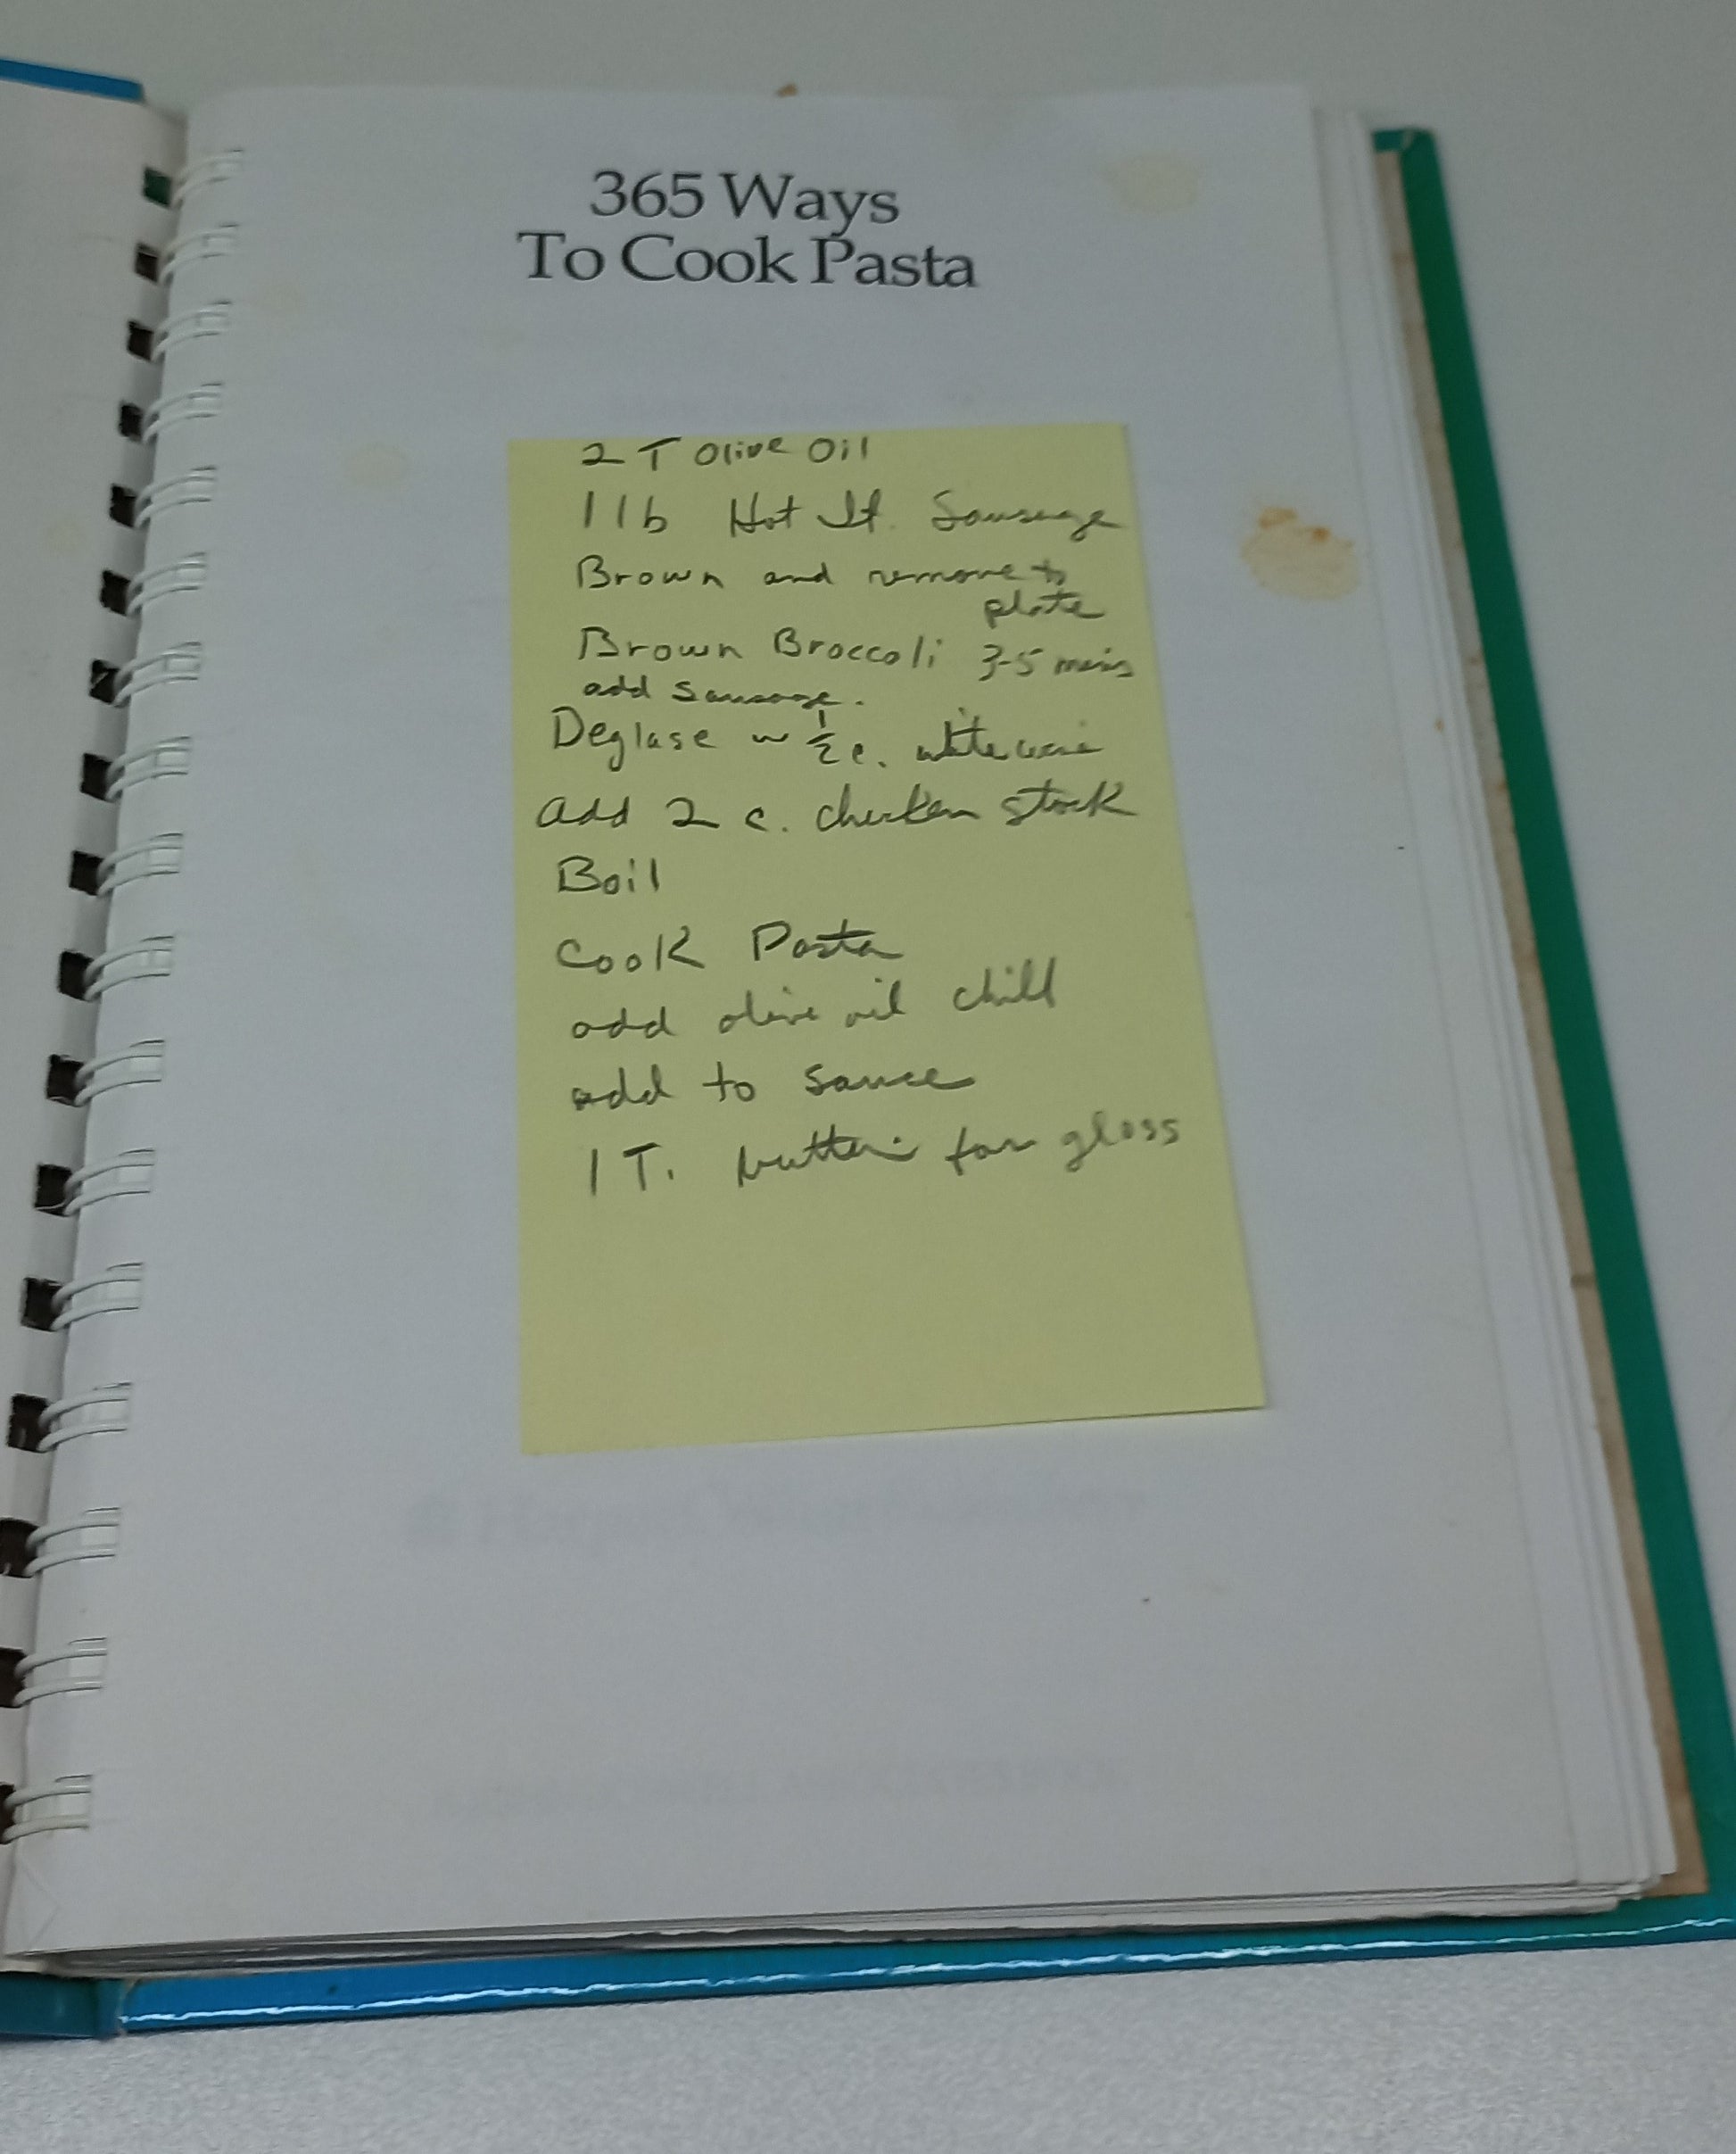 365 Ways
To Cook Pasta
2 T Olive Oil
1 lb Hot It. Sausage
Brown and remove to
plate
Brown Broccoli 3-5 mins
add sausage.
Deglase w 1/2 c. white wine
add 2 c. chicken stock
Boil
Cook Pasta
add olive oil chill
add to sauce
1 T. butter for gloss